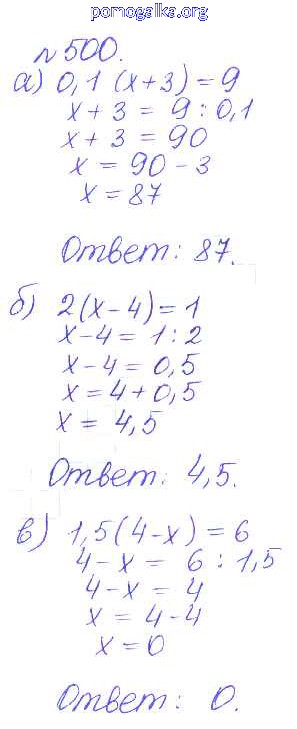 pomogalka.org
№500.
а) 0,1 (x+3) = 9
x + 3 = 9 : 0,1
x + 3 = 90
x = 90 - 3
x = 87
Ответ: 87.
б) 2(x-4) = 1
x-4 = 1 : 2
x-4 = 0,5
x = 4 + 0,5
x = 4,5
Ответ: 4,5.
в) 1,5(4-x) = 6
4-x = 6 : 1,5
4-x = 4
x = 4-4
x = 0
Ответ: 0.